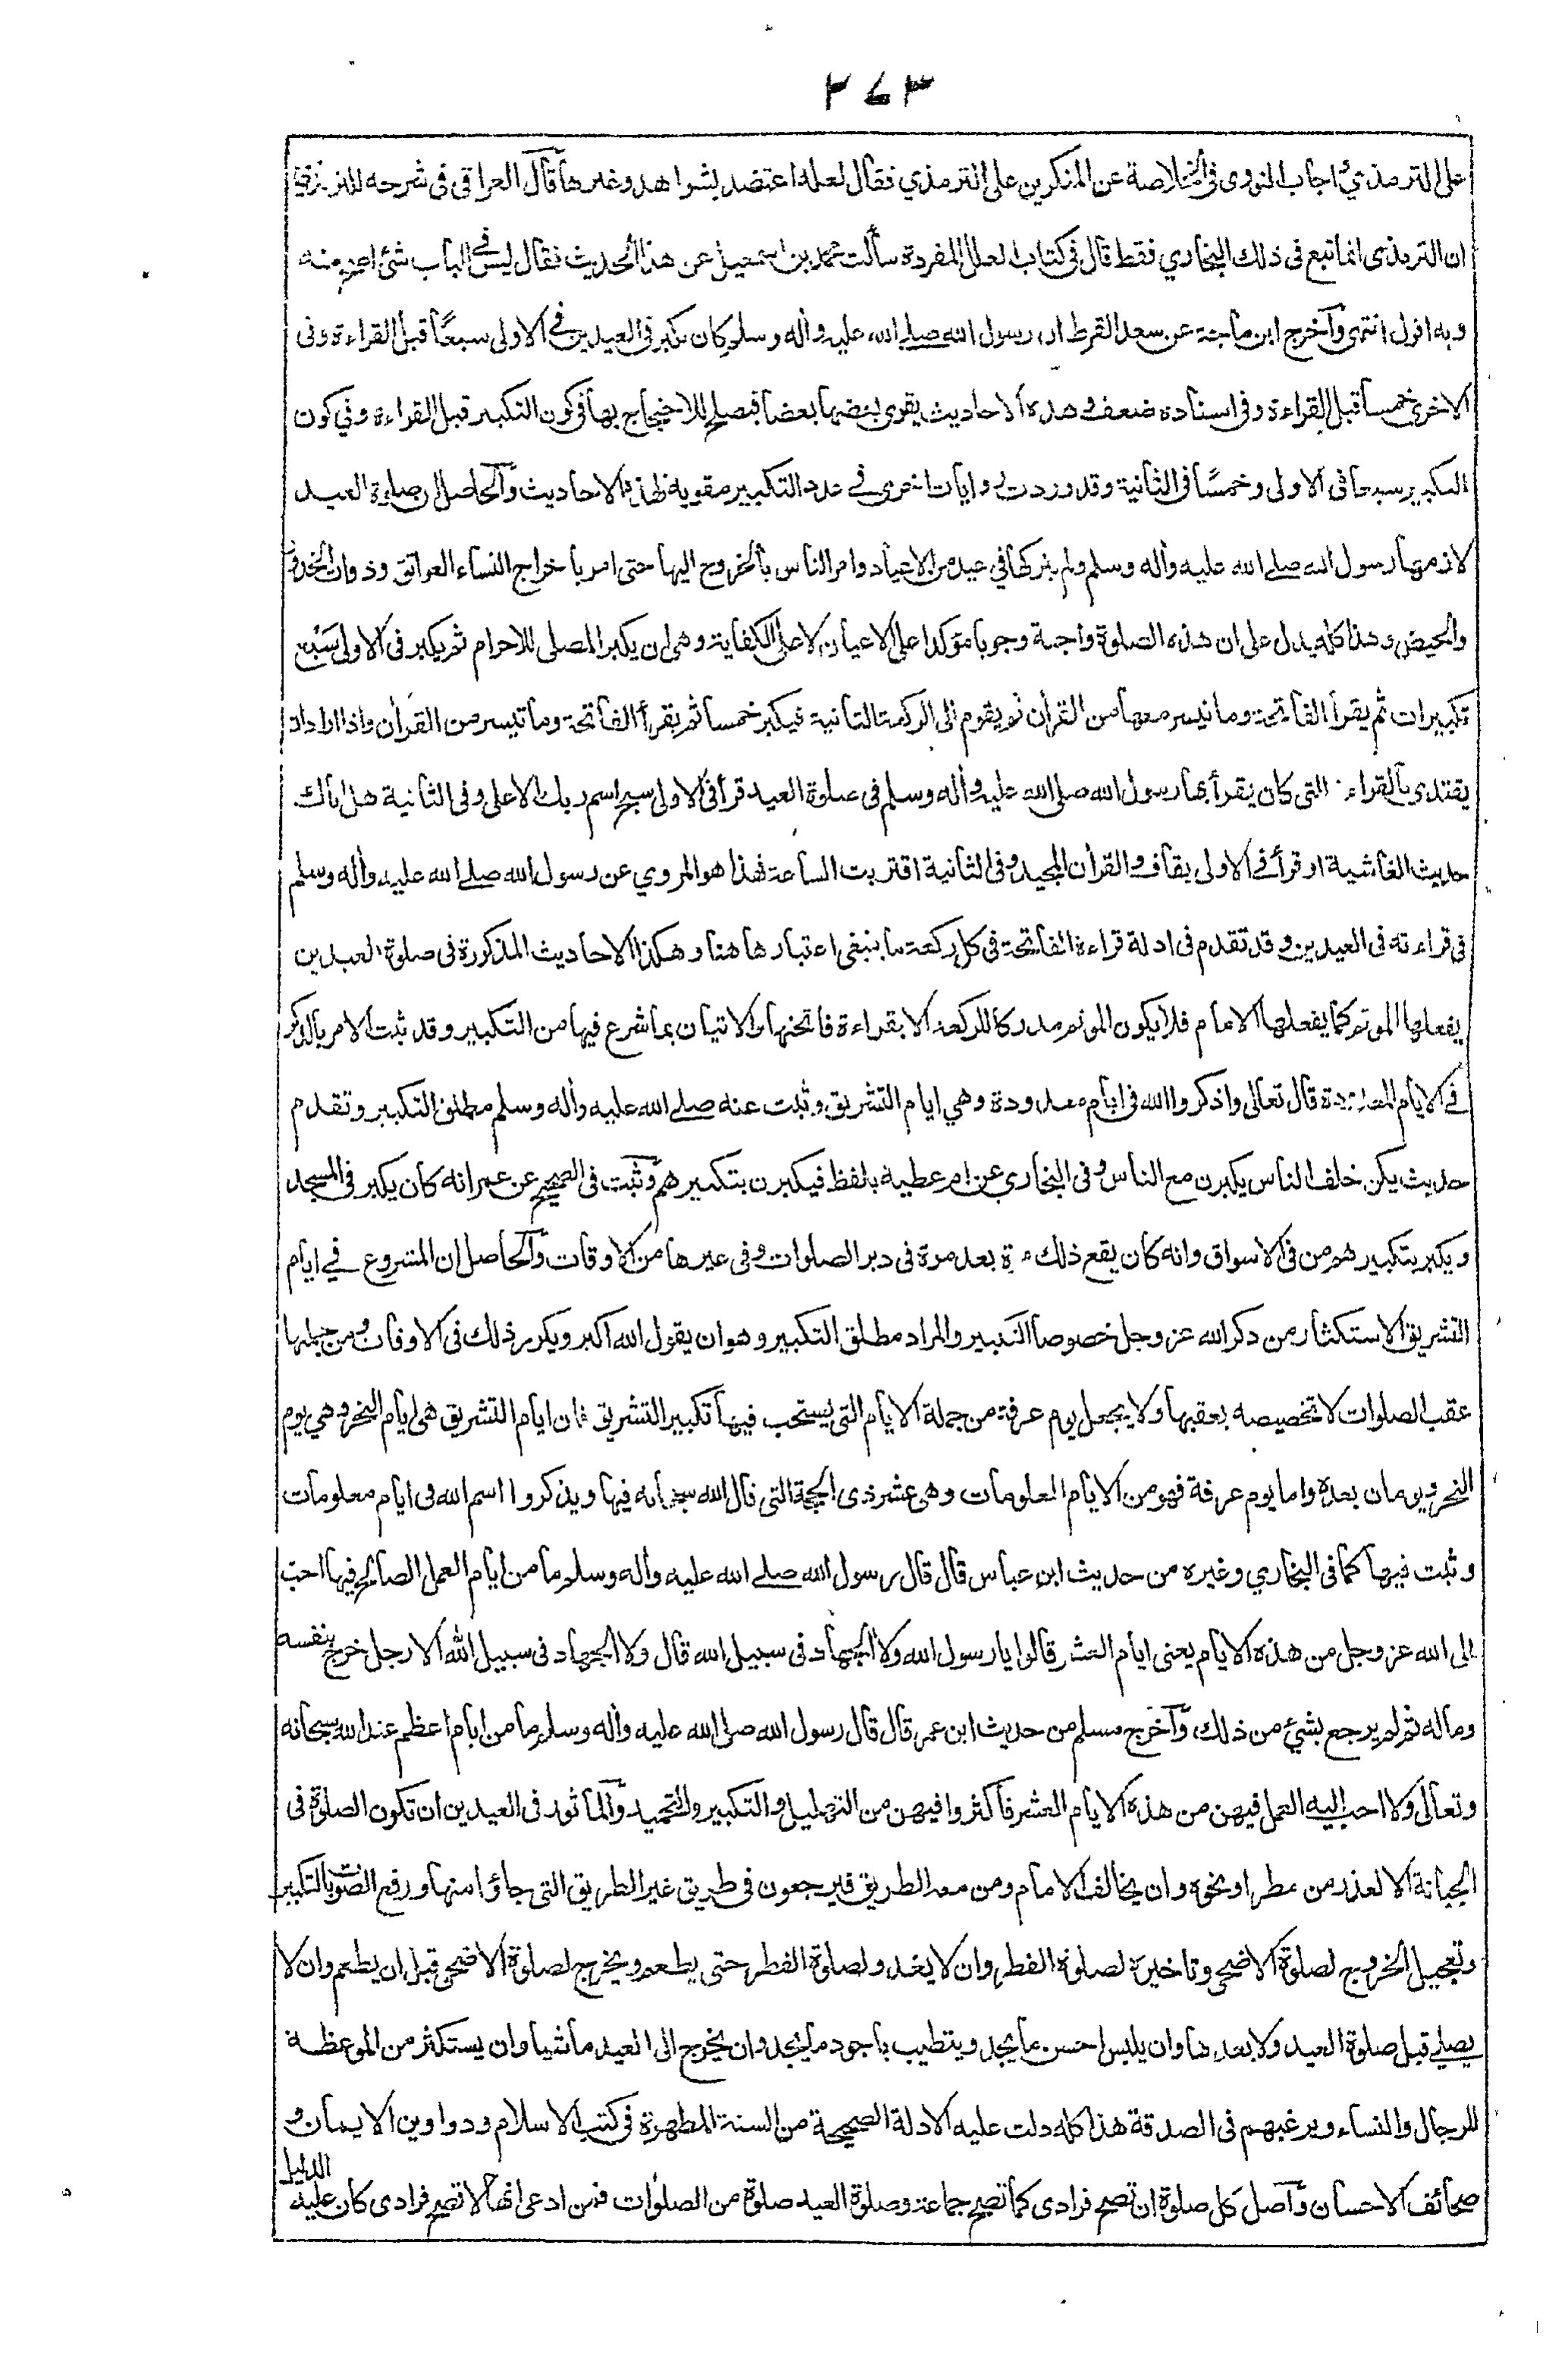 ٣٤٣
على الترمذي اجاب النووى فى الخلاصة عن المنكرين على الترمذي فقال لعله اعتضد بشواهد وغيرها قال العراقى فى شرحه للترمذي
ان الترمذى انما تبع فى ذلك البخاري فقط قال فى كتاب العلل المفردة سألت محمد بن اسمعيل عن هذا الحديث فقال ليس فى الباب شئ اصح منه
وبه اقول انتهى وآخرج ابن ماجة عن سعد القرظ ان رسول الله صلى الله عليه وأله وسلم كان يكبر فى العيدين فى الاولى سبعًا قبل القراءة وفى
الاخرى خمسا قبل القراءة وفى اسناده ضعف وهذه الاحاديث يقوى بعضها بعضا فيصلح للاحتجاج بها فى كون التكبير قبل القراءة وفي كون
التكبير سبعا فى الاولى وخمسًا فى الثانية وقد وردت روايات اخرى فى عدد التكبير مقوية لهذه الاحاديث وآلحاصل ان صلوة العيد
لازمها رسول الله صلى الله عليه وأله وسلم ولم يتركها في عيد من الاعياد وامر الناس بالخروج اليها حتى امر باخراج النساء العواتق وذوات الخدور
والحيض وهذا كله يدل على ان هذه الصلوة واجبة وجوبا مؤكدا على الاعيان لا على الكفاية وهى ان يكبر المصلى للاحرام ثم يكبر فى الاولى سَبْع
تكبيرات ثم يقرأ الفاتحة وما تيسر معها من القرأن ثم يقوم الى الركعة الثانية فيكبر خمسا ثم يقرأ الفاتحة وما تيسر من القرأن واذا اراد ان
يقتدى بالقراءة التى كان يقرأ بها رسول الله صلى الله عليه وأله وسلم فى صلوة العيد قرأ فى الاولى سبح اسم ربك الاعلى وفى الثانية هل اتاك
حديث الغاشية او قرأ فى الاولى بقاف والقرأن المجيد وفى الثانية اقتربت الساعة فهذا هو المروي عن رسول الله صلى الله عليه وأله وسلم
فى قراءته فى العيدين وقد تقدم فى ادلة قراءة الفاتحة فى كل ركعة ما ينبغى اعتبارها هنا وهكذا الاحاديث المذكورة فى صلوة العيدين
يفعلها المؤتم كما يفعلها الامام فلا يكون المؤتم مدركا للركعة الا بقراءة فاتحتها والاتيان بما شرع فيها من التكبير وقد ثبت الامر بالذكر
فى الايام المعدودة قال تعالى واذكروا الله فى ايام معدودة وهي ايام التشريق وثبت عنه صلى الله عليه وأله وسلم مطلق التكبير وتقدم
حديث يكن خلف الناس يكبرن مع الناس وفى البخاري عن ام عطية بلفظ فيكبرن بتكبيرهم وثبت فى الصحيح عن عمر انه كان يكبر فى المسجد
ويكبر بتكبيره من فى الاسواق وانه كان يقع ذلك مرة بعد مرة فى دبر الصلوات وفى غيرها من الاوقات وآلحاصل ان المشروع في ايام
التشريق الاستكثار من ذكر الله عز وجل خصوصا التكبير والمراد مطلق التكبير وهو ان يقول الله اكبر ويكرر ذلك فى الاوقات ومن جملتها
عقب الصلوات لا تخصيصه بعقبها ولا يجعل يوم عرفة من جملة الايام التى يستحب فيها تكبير التشريق فان ايام التشريق هى ايام النحر وهي يوم
النحر ويومان بعده واما يوم عرفة فهو من الايام المعلومات وهى عشر ذى الحجة التى قال الله سبحانه فيها ويذكروا اسم الله فى ايام معلومات
وثبت فيها كما فى البخاري وغيره من حديث ابن عباس قال قال رسول الله صلى الله عليه وأله وسلم ما من ايام العمل الصالح فيها احبّ
الى الله عز وجل من هذه الايام يعنى ايام العشر قالوا يا رسول الله ولا الجهاد فى سبيل الله قال ولا الجهاد فى سبيل الله الا رجل خرج بنفسه
وماله ثم لم يرجع بشيء من ذلك وآخرج مسلم من حديث ابن عمر قال قال رسول الله صلى الله عليه وأله وسلم ما من ايام اعظم عند الله سبحانه
وتعالى ولا احب اليه العمل فيهن من هذه الايام العشر فاكثروا فيهن من التهليل والتكبير والتحميد وآلمأثور فى العيدين ان تكون الصلوة فى
الجبانة الا لعذر من مطر او نحوه وان يخالف الامام ومن معه الطريق فيرجعون فى طريق غير الطريق التى جاؤا منها ورفع الصوت بالتكبير
وتعجيل الخروج لصلوة الاضحى وتاخيره لصلوة الفطر وان لا يغدو لصلوة الفطر حتى يطعم ويخرج لصلوة الاضحى قبل ان يطعم وان لا
يصلى قبل صلوة العيد ولا بعدها وان يلبس احسن ما يجد ويتطيب باجود ما يجد وان يخرج الى العيد ماشيا وان يستكثر من الموعظة
للرجال والنساء ويرغبهم فى الصدقة هذا كله دلت عليه الادلة الصحيحة من السنة المطهرة فى كتب الاسلام ودواوين الايمان و
صحائف الاحسان وآصل كل صلوة ان تصح فرادى كما تصح جماعة وصلوة العيد صلوة من الصلوات فمن ادعى انها لا تصح فرادى كان عليه الدليل